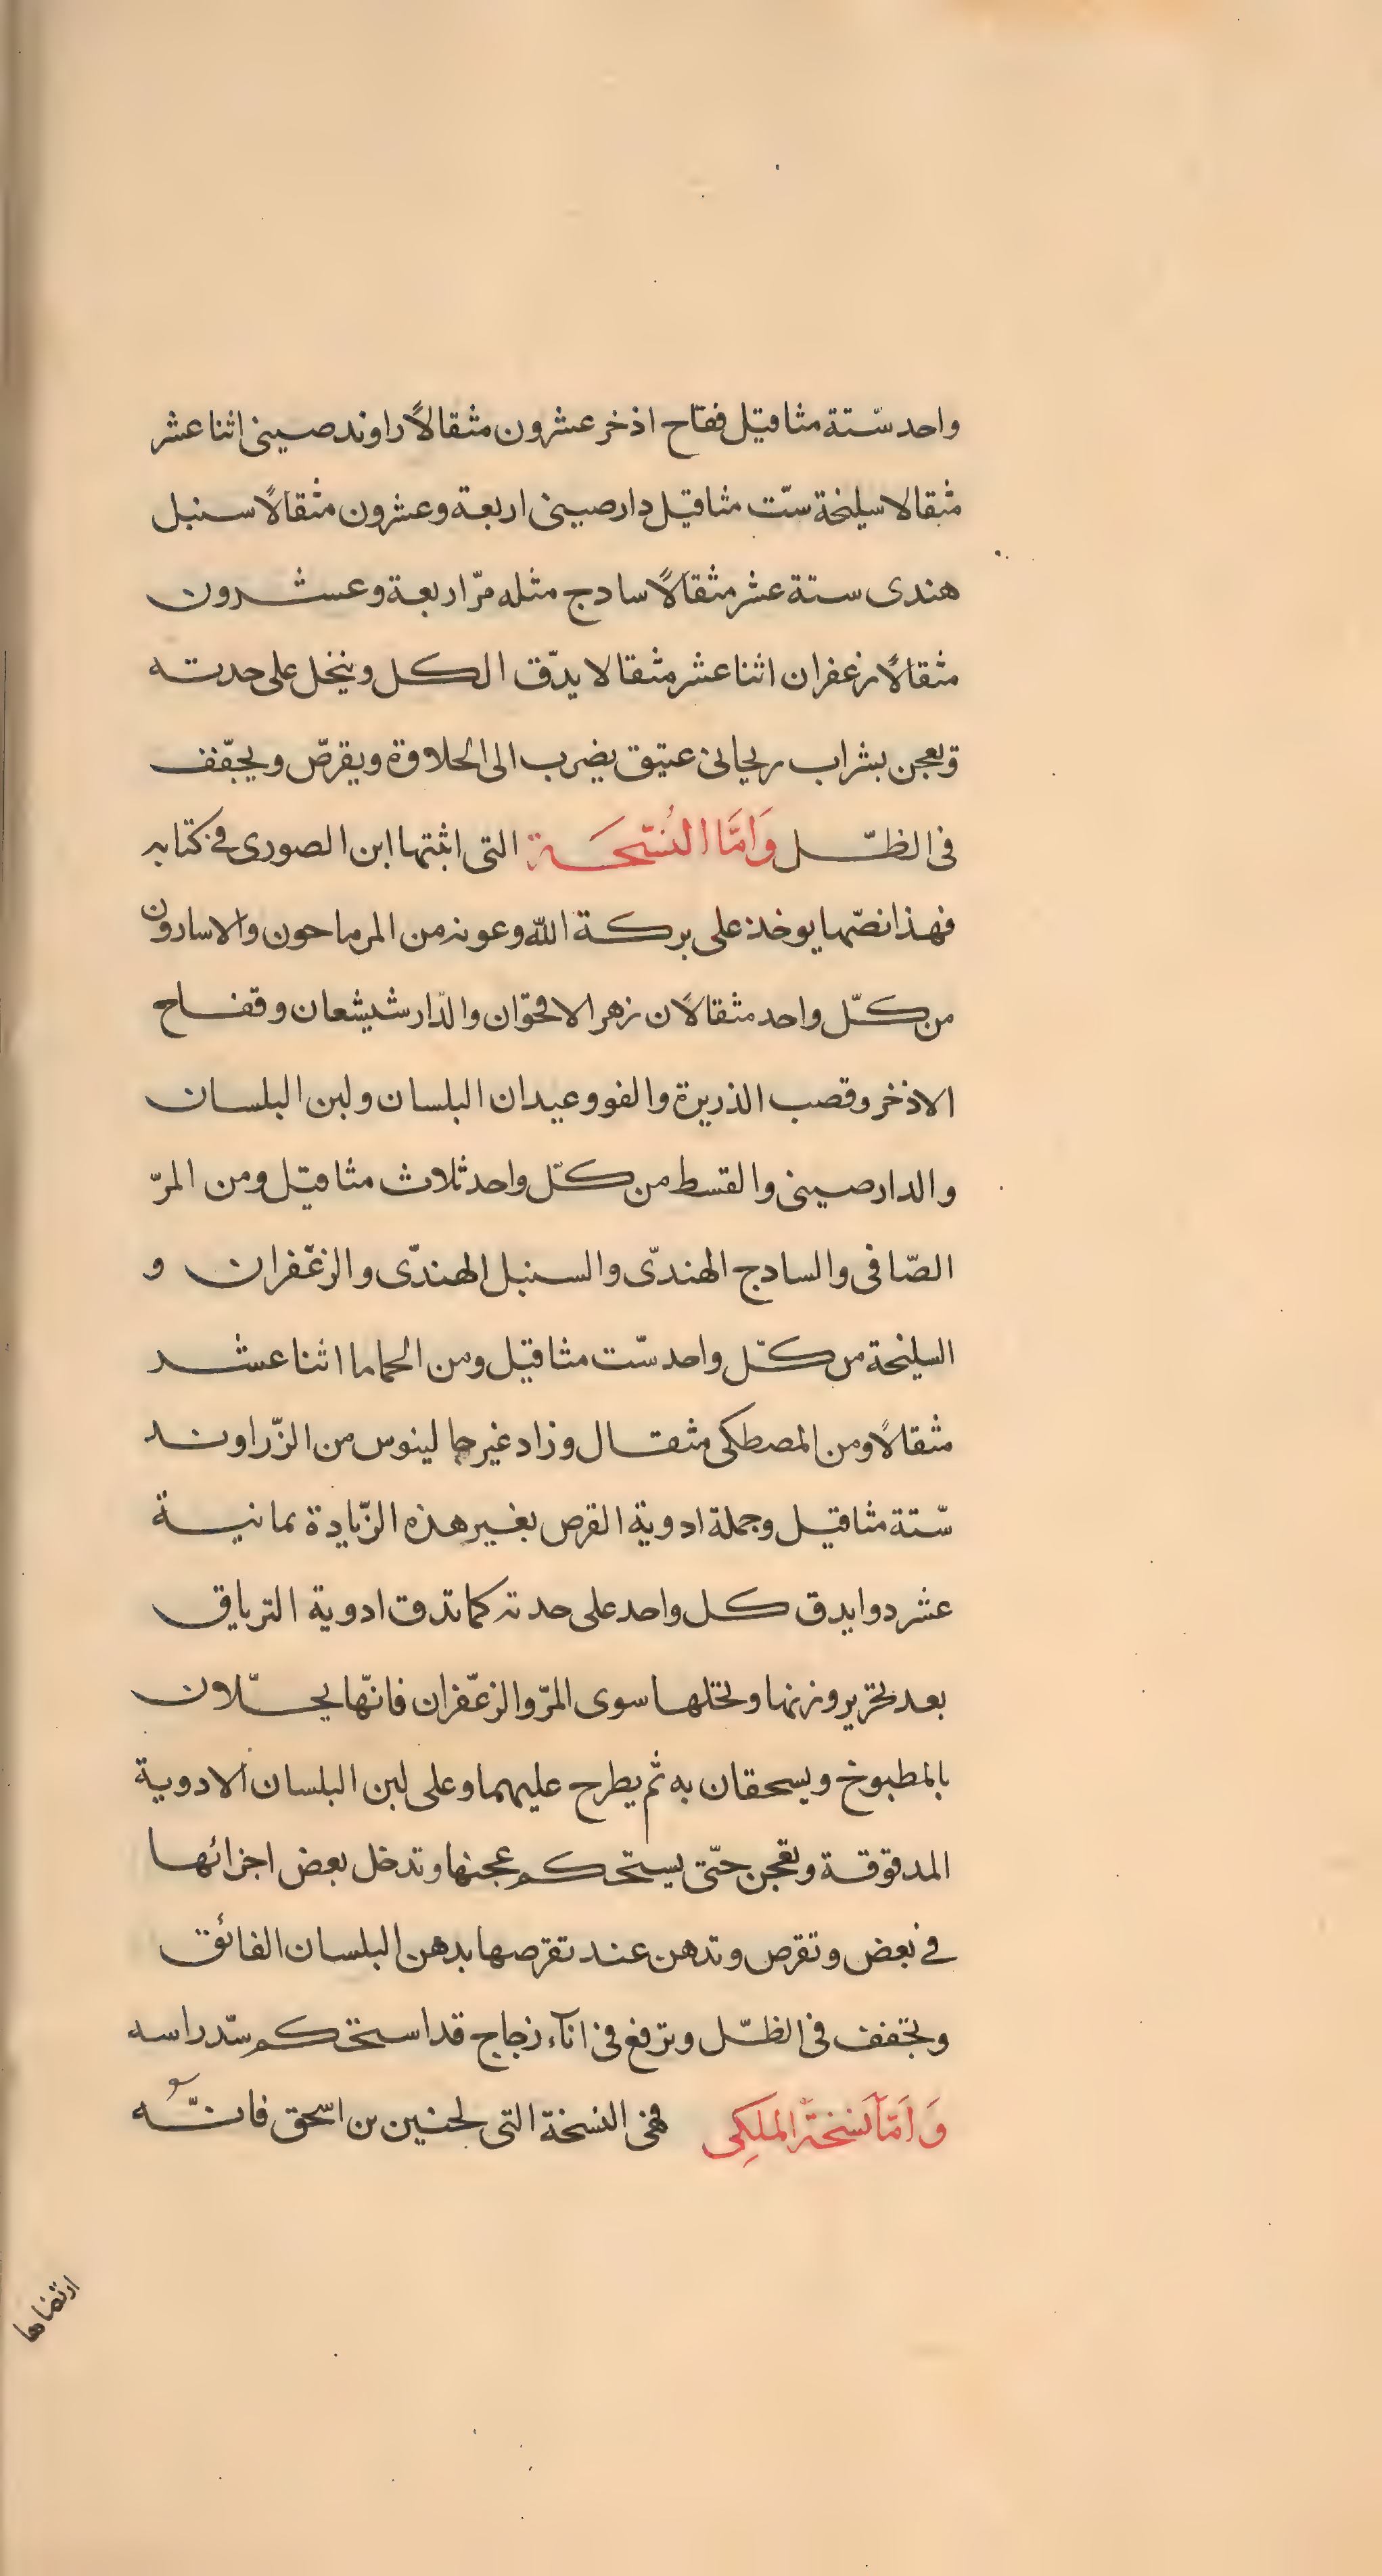 واحد ستّة مثاقيل فقاح اذخر عشرون مثقالاً راوند صينى اثنا عشر
مثقالا سليخة ستّ مثاقيل دارصينى اربعة وعشرون مثقالاً سنبل
هندى ستة عشر مثقالاً سادج مثله مرّ اربعة وعشرون
مثقالاً زعفران اثنا عشر مثقالا يدّق الكل وينخل على حدته
ويعجن بشراب ريحانى عتيق يضرب الى الحلاوة ويقرّص ويجّفف
فى الظلّ وَامَّا النُسّخَة التى اثبتها ابن الصورى فى كتابه
فهذا نصّها يوخذ على بركة الله وعونه من المرماحون والاسارون
من كلّ واحد مثقالان زهر الاقحوّان والدّارشيشعان وقفاح
الاذخر وقصب الذريرة والفو وعيدان البلسان ولبن البلسان
والدارصينى والقسط من كلّ واحد ثلاث مثاقيل ومن المرّ
الصّافى والسادج الهندّى والسنبل الهندّى والزعّفران و
السليخة من كلّ واحد ستّ مثاقيل ومن الحماما اثنا عشر
مثقالاً ومن المصطكى مثقال وزاد غير جالينوس من الزّراوند
ستّة مثاقيل وجملة ادوية القرص بغير هذه الزّيادة ثمانية
عشر دوا يدق كل واحد على حدته كما تدق ادوية الترياق
بعد تحرير وزنها ونخلها سوى المرّ والزعّفران فانّها يحلّلان
بالمطبوخ ويسحقان به ثم يطرح عليهما وعلى لبن البلسان الادوية
المدقوقة وتعجن حتّى يستحكم عجنها وتدخل بعض اجزائها
فى بعض وتقرص وتدهن عند تقرصها بدهن البلسان الفائق
وتجفف فى الظلّ وترفع فى انآء زجاج قد استحكم سدّ راسه
وَامَّا نسْخَة المَلَكِى فهى النسخة التى لحنين بن اسحق فانّه
ارتضاها